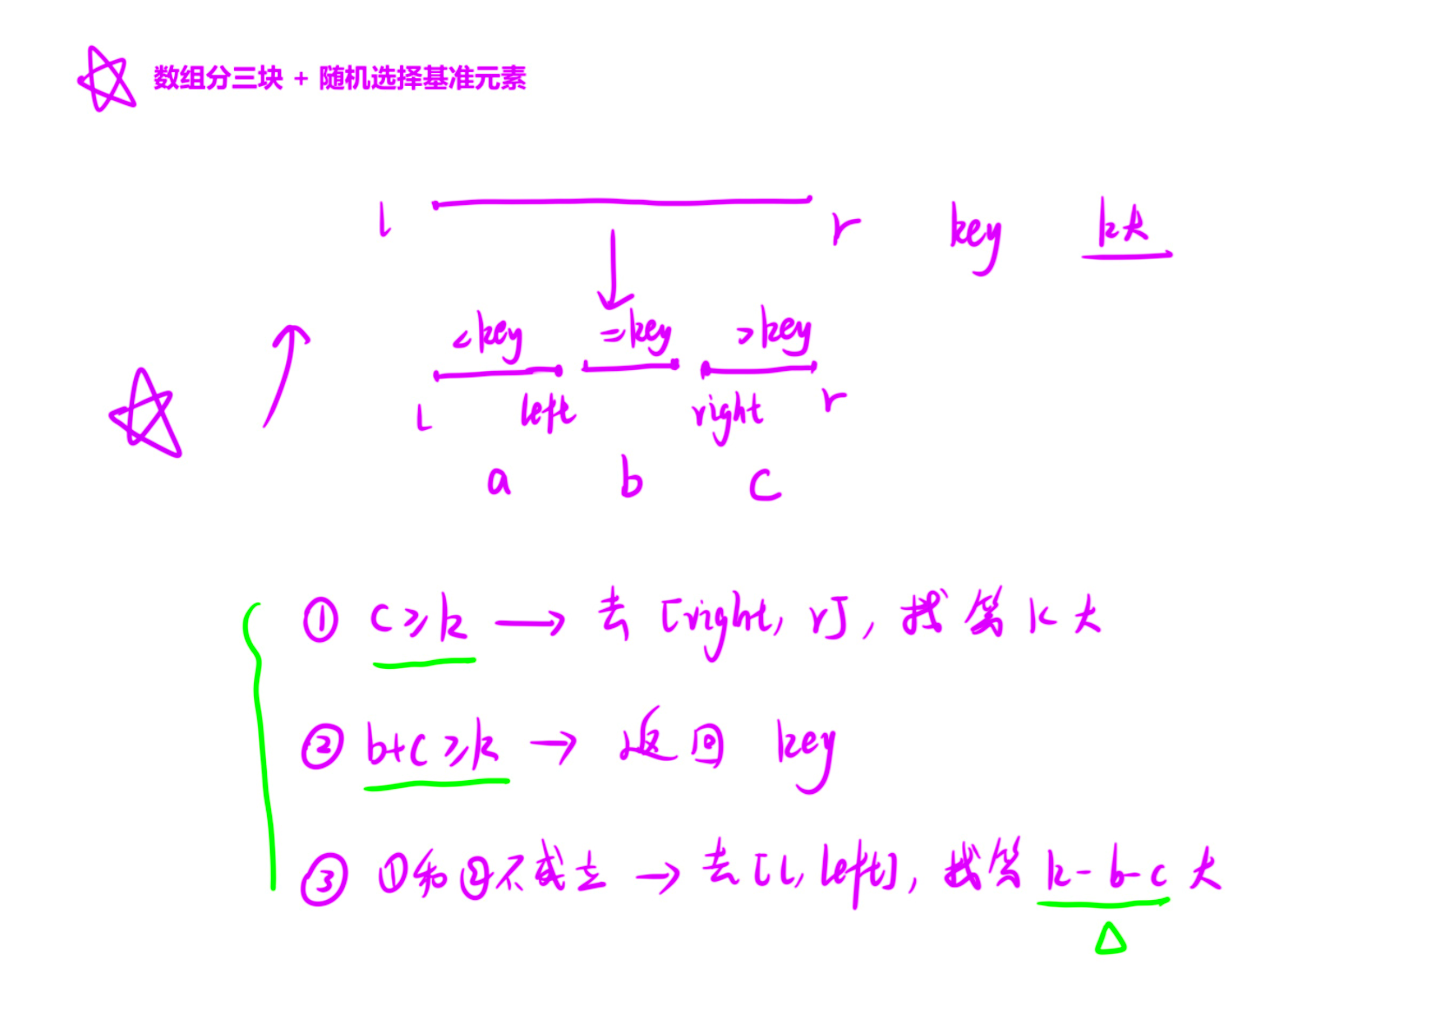 数组分三块 + 随机选择基准元素
l r key k大
<key =key >key
l left right r
a b c
① c≥k → 去 [right, r], 找第 k 大
② b+c≥k → 返回 key
③ ①和②不成立 → 去[l, left], 找第 k-b-c 大